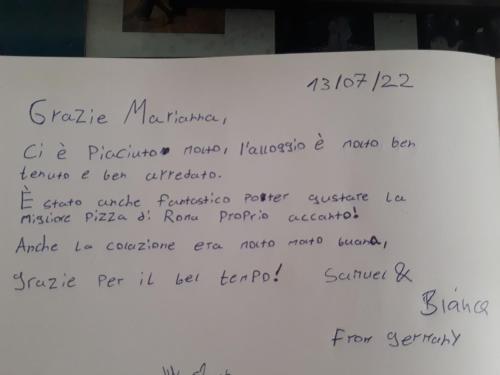 13/07/22
Grazie Marianna,
Ci è Piaciuto molto, l'alloggio è molto ben
tenuto e ben arredato.
È stato anche fantastico poter gustare la
migliore Pizza di Roma Proprio accanto!
Anche la colazione era molto molto buona,
grazie Per il bel temPo!
Samuel &
Bianca
From germany